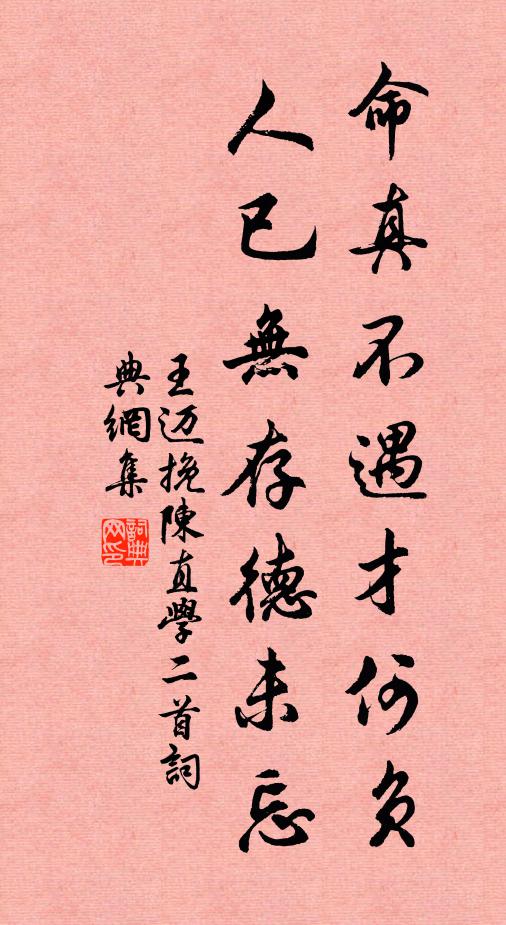 命真不遇才何負
人已無存德未忘
王迈挽陳直學二首詞
典網集
詞典網印